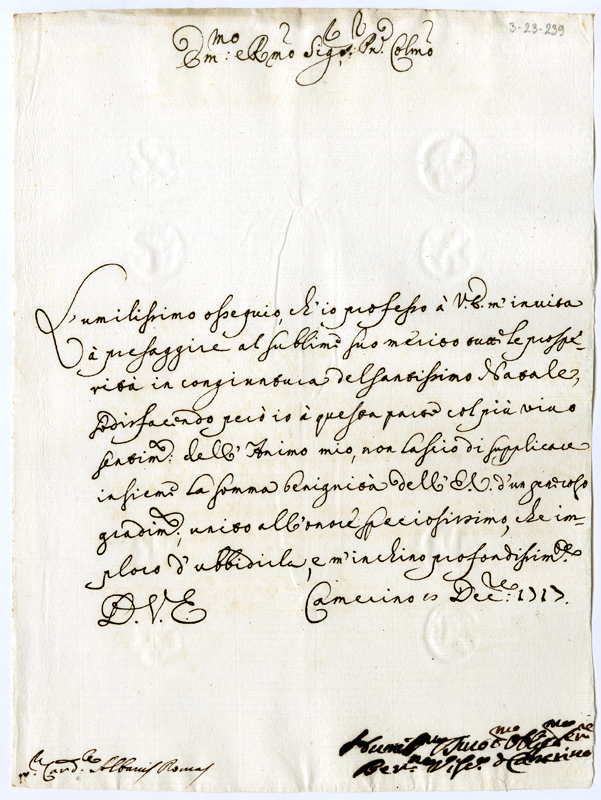 3-23-239
Em:mo e Rmo Sigre Pne Colmo
L'umilissimo ossequio, ch'io professo à V.E. m'invita
à presaggire al sublime suo merito tutte le prospe-
rità in congiuntura del Santissimo Natale,
sodisfacendo però io à questa parte col più vivo
sentimto: dell'Animo mio, non lascio di supplicare
insieme la somma benignità dell'E.V. d'un generoso
gradimto, unito all'onore speciosissimo, che im-
ploro d'ubbidirla, e m'inchino profondissimte
D.V.E. Camerino Decre: 1717.
Sr. Cardle Albani Roma
Humilmo Devmo et Obblmo Serre
Berno Vesco di Camerino